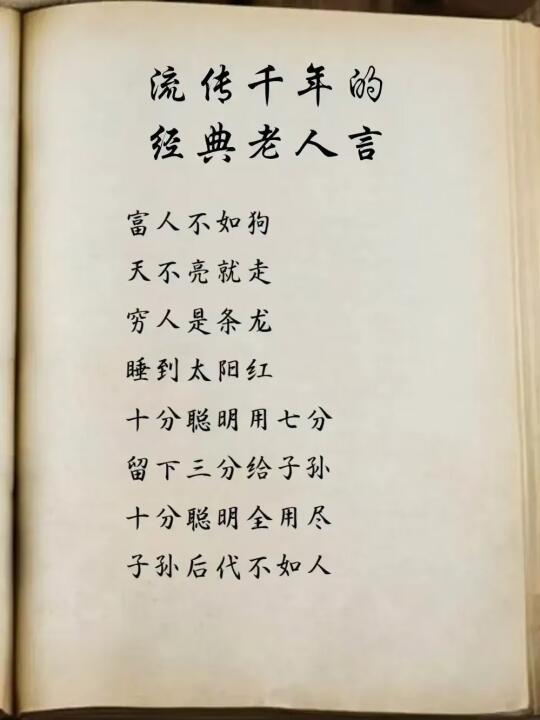 流传千年的
经典老人言
富人不如狗
天不亮就走
穷人是条龙
睡到太阳红
十分聪明用七分
留下三分给子孙
十分聪明全用尽
子孙后代不如人